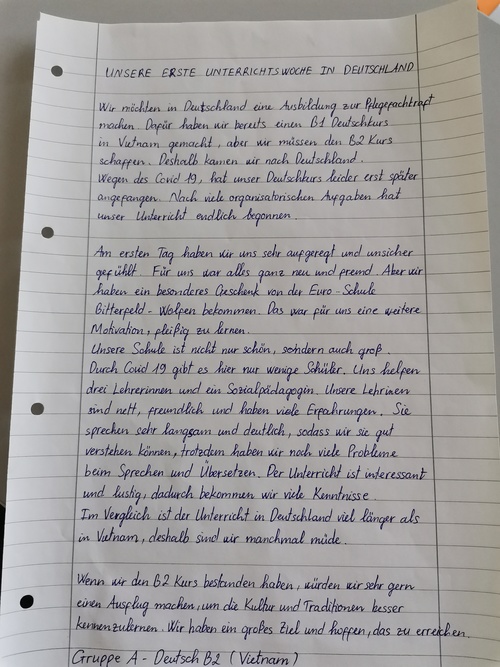 UNSERE ERSTE UNTERRICHTSWOCHE IN DEUTSCHLAND
Wir möchten in Deutschland eine Ausbildung zur Pflegefachkraft
machen. Dafür haben wir bereits einen B1 Deutschkurs
in Vietnam gemacht, aber wir müssen den B2 Kurs
schaffen. Deshalb kamen wir nach Deutschland.
Wegen des Covid 19, hat unser Deutschkurs leider erst später
angefangen. Nach viele organisatorischen Aufgaben hat
unser Unterricht endlich begonnen.
Am ersten Tag haben wir uns sehr aufgeregt und unsicher
gefühlt. Für uns war alles ganz neu und fremd. Aber wir
haben ein besonderes Geschenk von der Euro-Schule
Bitterfeld-Wolfen bekommen. Das war für uns eine weitere
Motivation, fleißig zu lernen.
Unsere Schule ist nicht nur schön, sondern auch groß.
Durch Covid 19 gibt es hier nur wenige Schüler. Uns helfen
drei Lehrerinnen und ein Sozialpädagogin. Unsere Lehrinen
sind nett, freundlich und haben viele Erfahrungen. Sie
sprechen sehr langsam und deutlich, sodass wir sie gut
verstehen können, trotzdem haben wir noch viele Probleme
beim Sprechen und Übersetzen. Der Unterricht ist interessant
und lustig, dadurch bekommen wir viele Kenntnisse.
Im Vergleich ist der Unterricht in Deutschland viel länger als
in Vietnam, deshalb sind wir manchmal müde.
Wenn wir den B2 Kurs bestanden haben, würden wir sehr gern
einen Ausflug machen, um die Kultur und Traditionen besser
kennenzulernen. Wir haben ein großes Ziel und hoffen, das zu erreichen.
Gruppe A - Deutsch B2 (Vietnam)